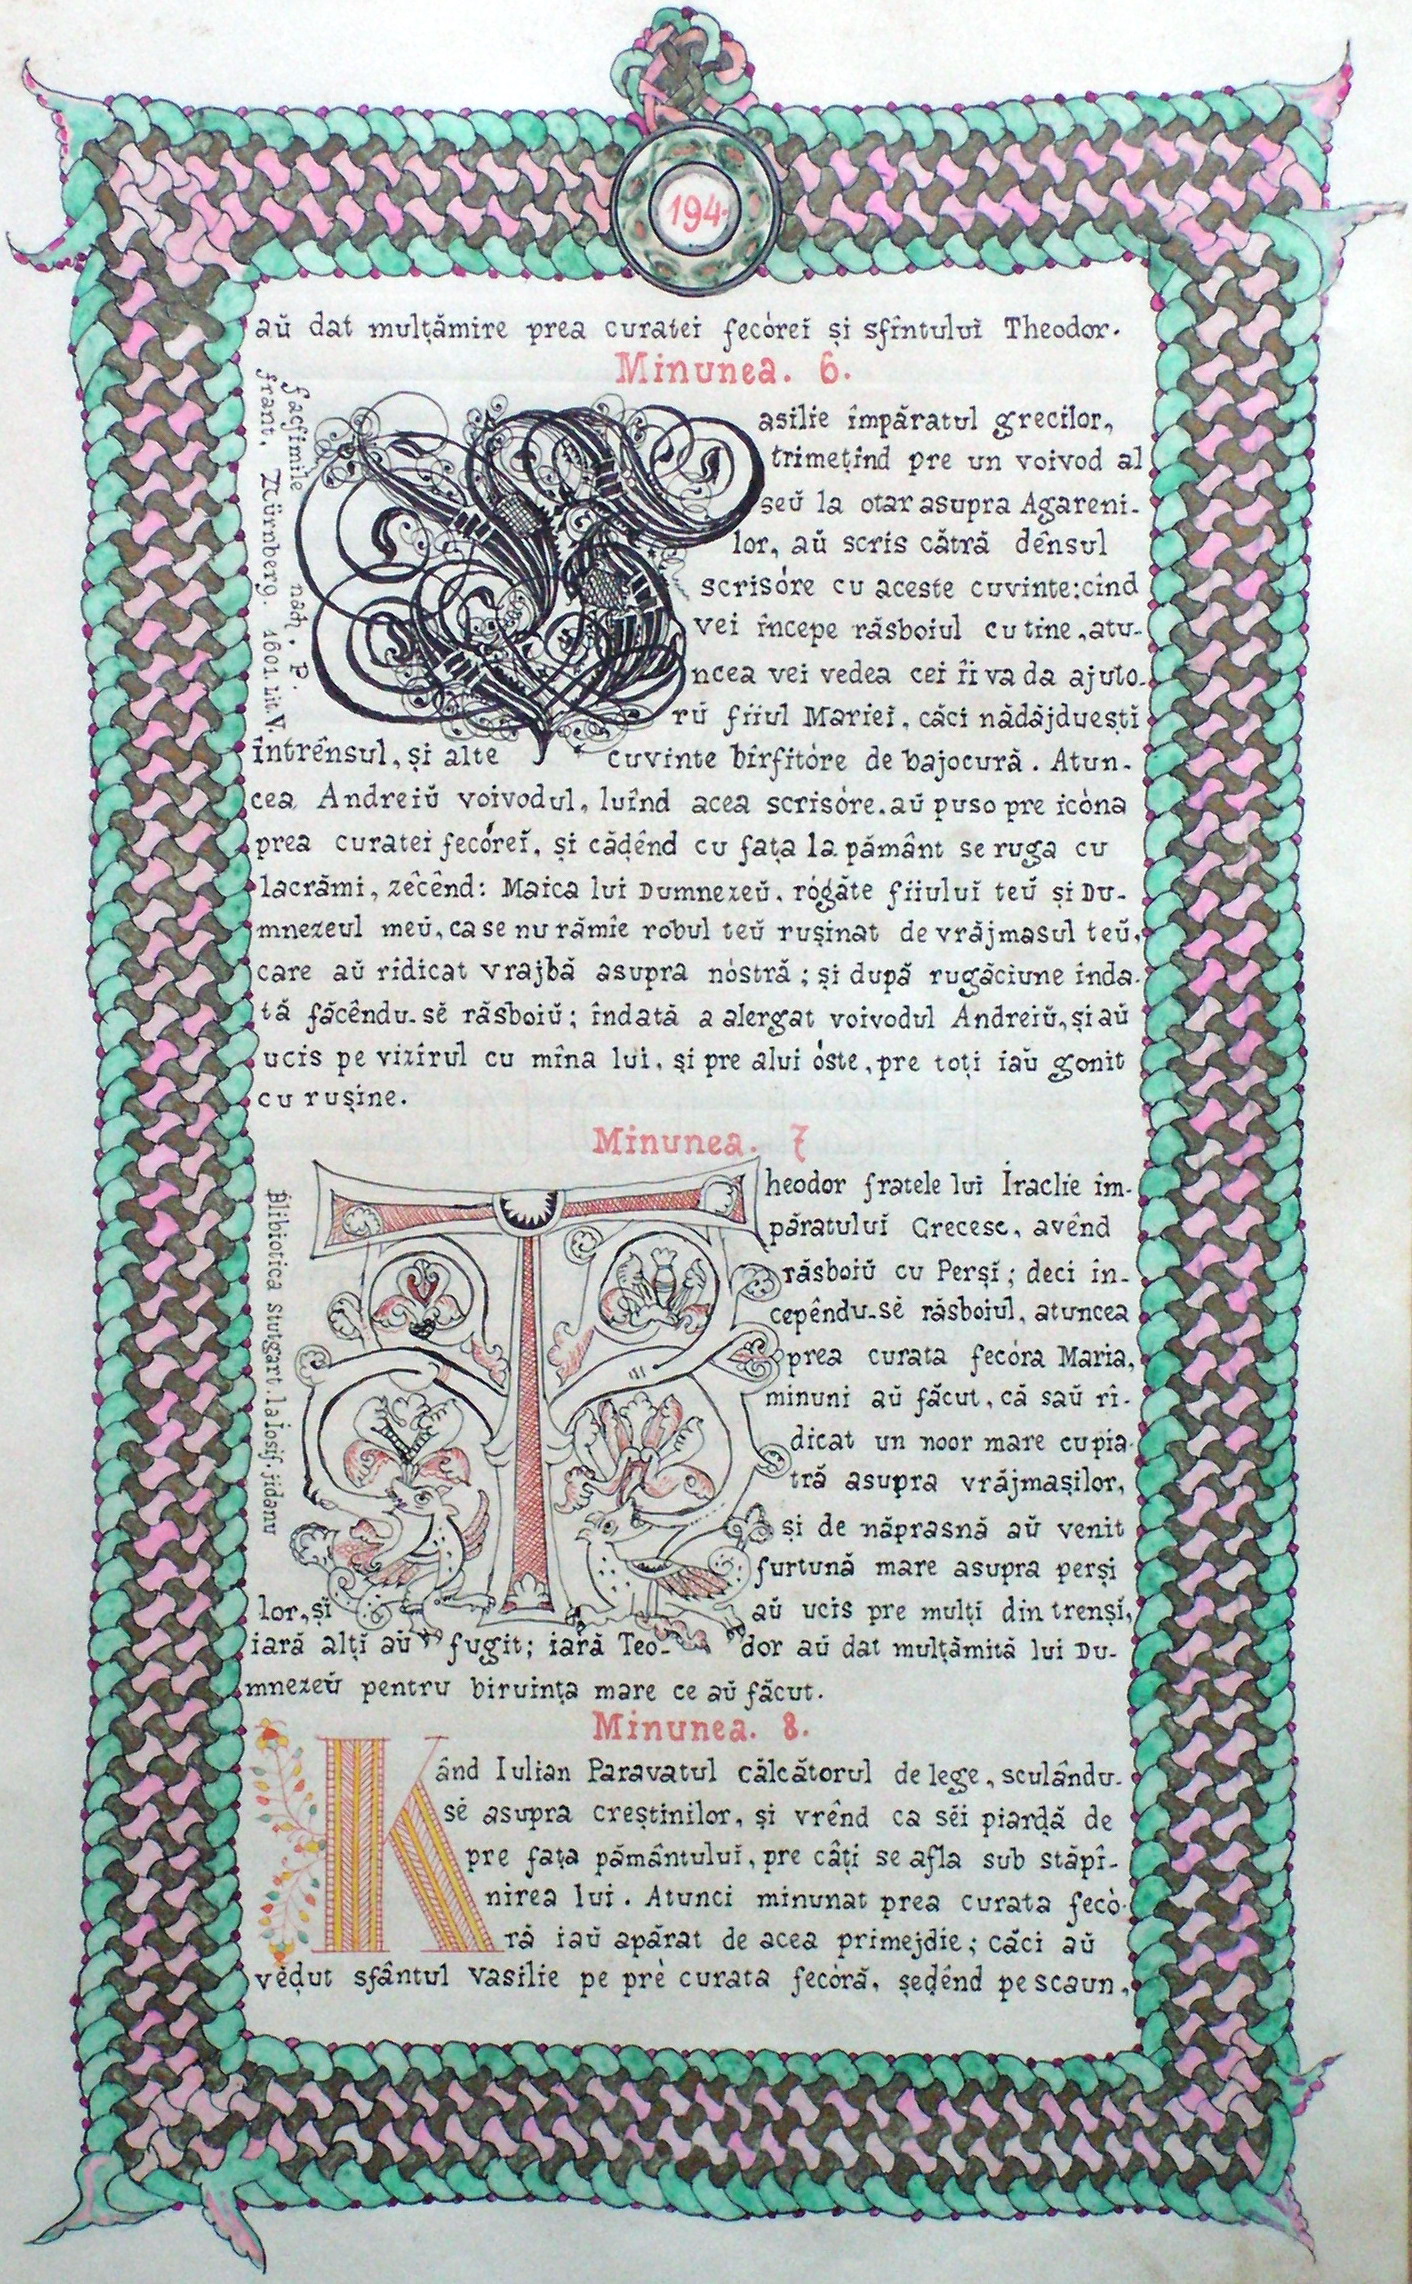 194
aŭ dat mulțămire prea curatei fecóreĭ și sfîntuluĭ Theodor.
Minunea. 6.
facsimile nach, P.
frant, Nürnberg. 1601. lit. V.
Vasilie împăratul grecilor,
trimețînd pre un voivod al
seŭ la otar asupra Agareni-
lor, aŭ scris cătră dênsul
scrisóre cu aceste cuvinte: cînd
vei începe răsboiul cu tine, atu-
ncea vei vedea cei îi va da ajuto-
rŭ fiiul Marieĭ, căci nădăjduești
întrênsul, și alte cuvinte bîrfitóre de bajocură. Atun-
cea Andreiŭ voivodul, luînd acea scrisóre, aŭ puso pre icòna
prea curatei fecóreĭ, și cădênd cu fața la pământ se ruga cu
lacrămi, zêcênd: Maica lui Dumnezeŭ, rógăte fiiuluĭ teŭ și Du-
mnezeul meŭ, ca se nu rămîe robul teŭ rușinat de vrăjmasul teŭ,
care aŭ rîdicat vrajbă asupra nòstră; și după rugăciune înda-
tă făcêndu-sĕ răsboiŭ; îndată a alergat voivodul Andreiŭ, și aŭ
ucis pe vizîrul cu mîna lui, și pre alui óste, pre toți iaŭ gonit
cu rușine.
Minunea. 7
Blibiotica stutgart. la Iosif. jidanu
Theodor fratele lui Iraclie îm-
păratuluĭ Grecesc, avênd
răsboiŭ cu Perșĭ; deci în-
cepêndu-sĕ răsboiul, atuncea
prea curata fecóra Maria,
minuni aŭ făcut, că saŭ rî-
dicat un noor mare cu pia-
tră asupra vrăjmașilor,
și de năprasnă aŭ venit
furtună mare asupra perși
lor, și aŭ ucis pre mulțĭ din trenșĭ,
iară alțĭ aŭ fugit; iară Teo-dor aŭ dat mulțămită lui Du-
mnezeŭ pentru biruința mare ce aŭ făcut.
Minunea. 8.
Kând Iulian Paravatul călcătorul de lege, sculându-
sĕ asupra creștinilor, și vrênd ca sĕi piardă de
pre fața pământului, pre câți se afla sub stăpî-
nirea lui. Atunci minunat prea curata fecò-
ră iaŭ apărat de acea primejdie; căci aŭ
vĕdut sfântul vasilie pe prè curata fecòră, ședênd pe scaun,